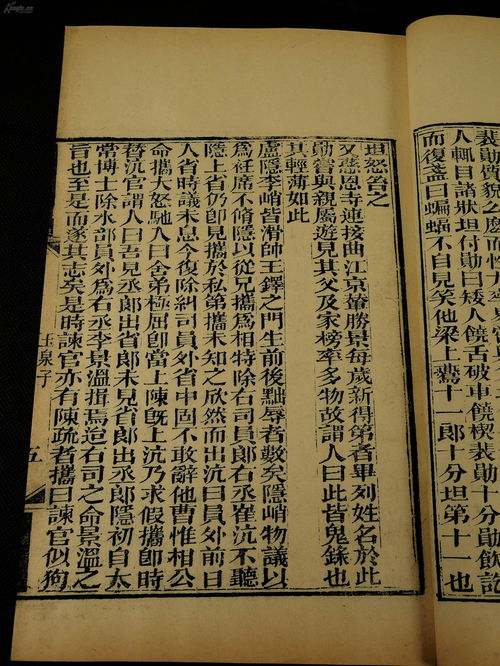 Kongfz.cn
人輒目諸狀坦付勛曰矮人饒舌破車饒楔裴勛十分勛飲訖
而復盞曰蝙蝠不自見笑他梁上鷰十一郎十分坦第十一也
坦怒笞之
又慈恩寺連接曲江京輦勝景每歲新得第者畢列姓名於此
勛嘗與親屬遊見其父及家榜率多物故謂人曰此皆鬼錄也
其輕薄如此
盧隱李峭皆滑帥王鐸之門生前後黜辱者數矣隱峭物議以
爲衽席不脩隱以從兄攜爲相特除右司員郎右丞崔沆不聽
隱上省仍即見攜於私第攜未知之欣然而出沆曰員外前日
入省時議未息今復除糾司員外省中固不敢辭他曹惟相公
命攜大怒馳入曰舍弟極屈即當上陳旣上沆乃求假攜即時
替沆官謂人曰吾見丞郎出省郎未見省郎出丞郎隱初自太
常博士除水部員外爲右丞李景溫揖焉迨右司之命景溫之
旨也至是而遂其志矣是時諫官亦有陳疏者攜曰諫官似狗
玉泉子
五